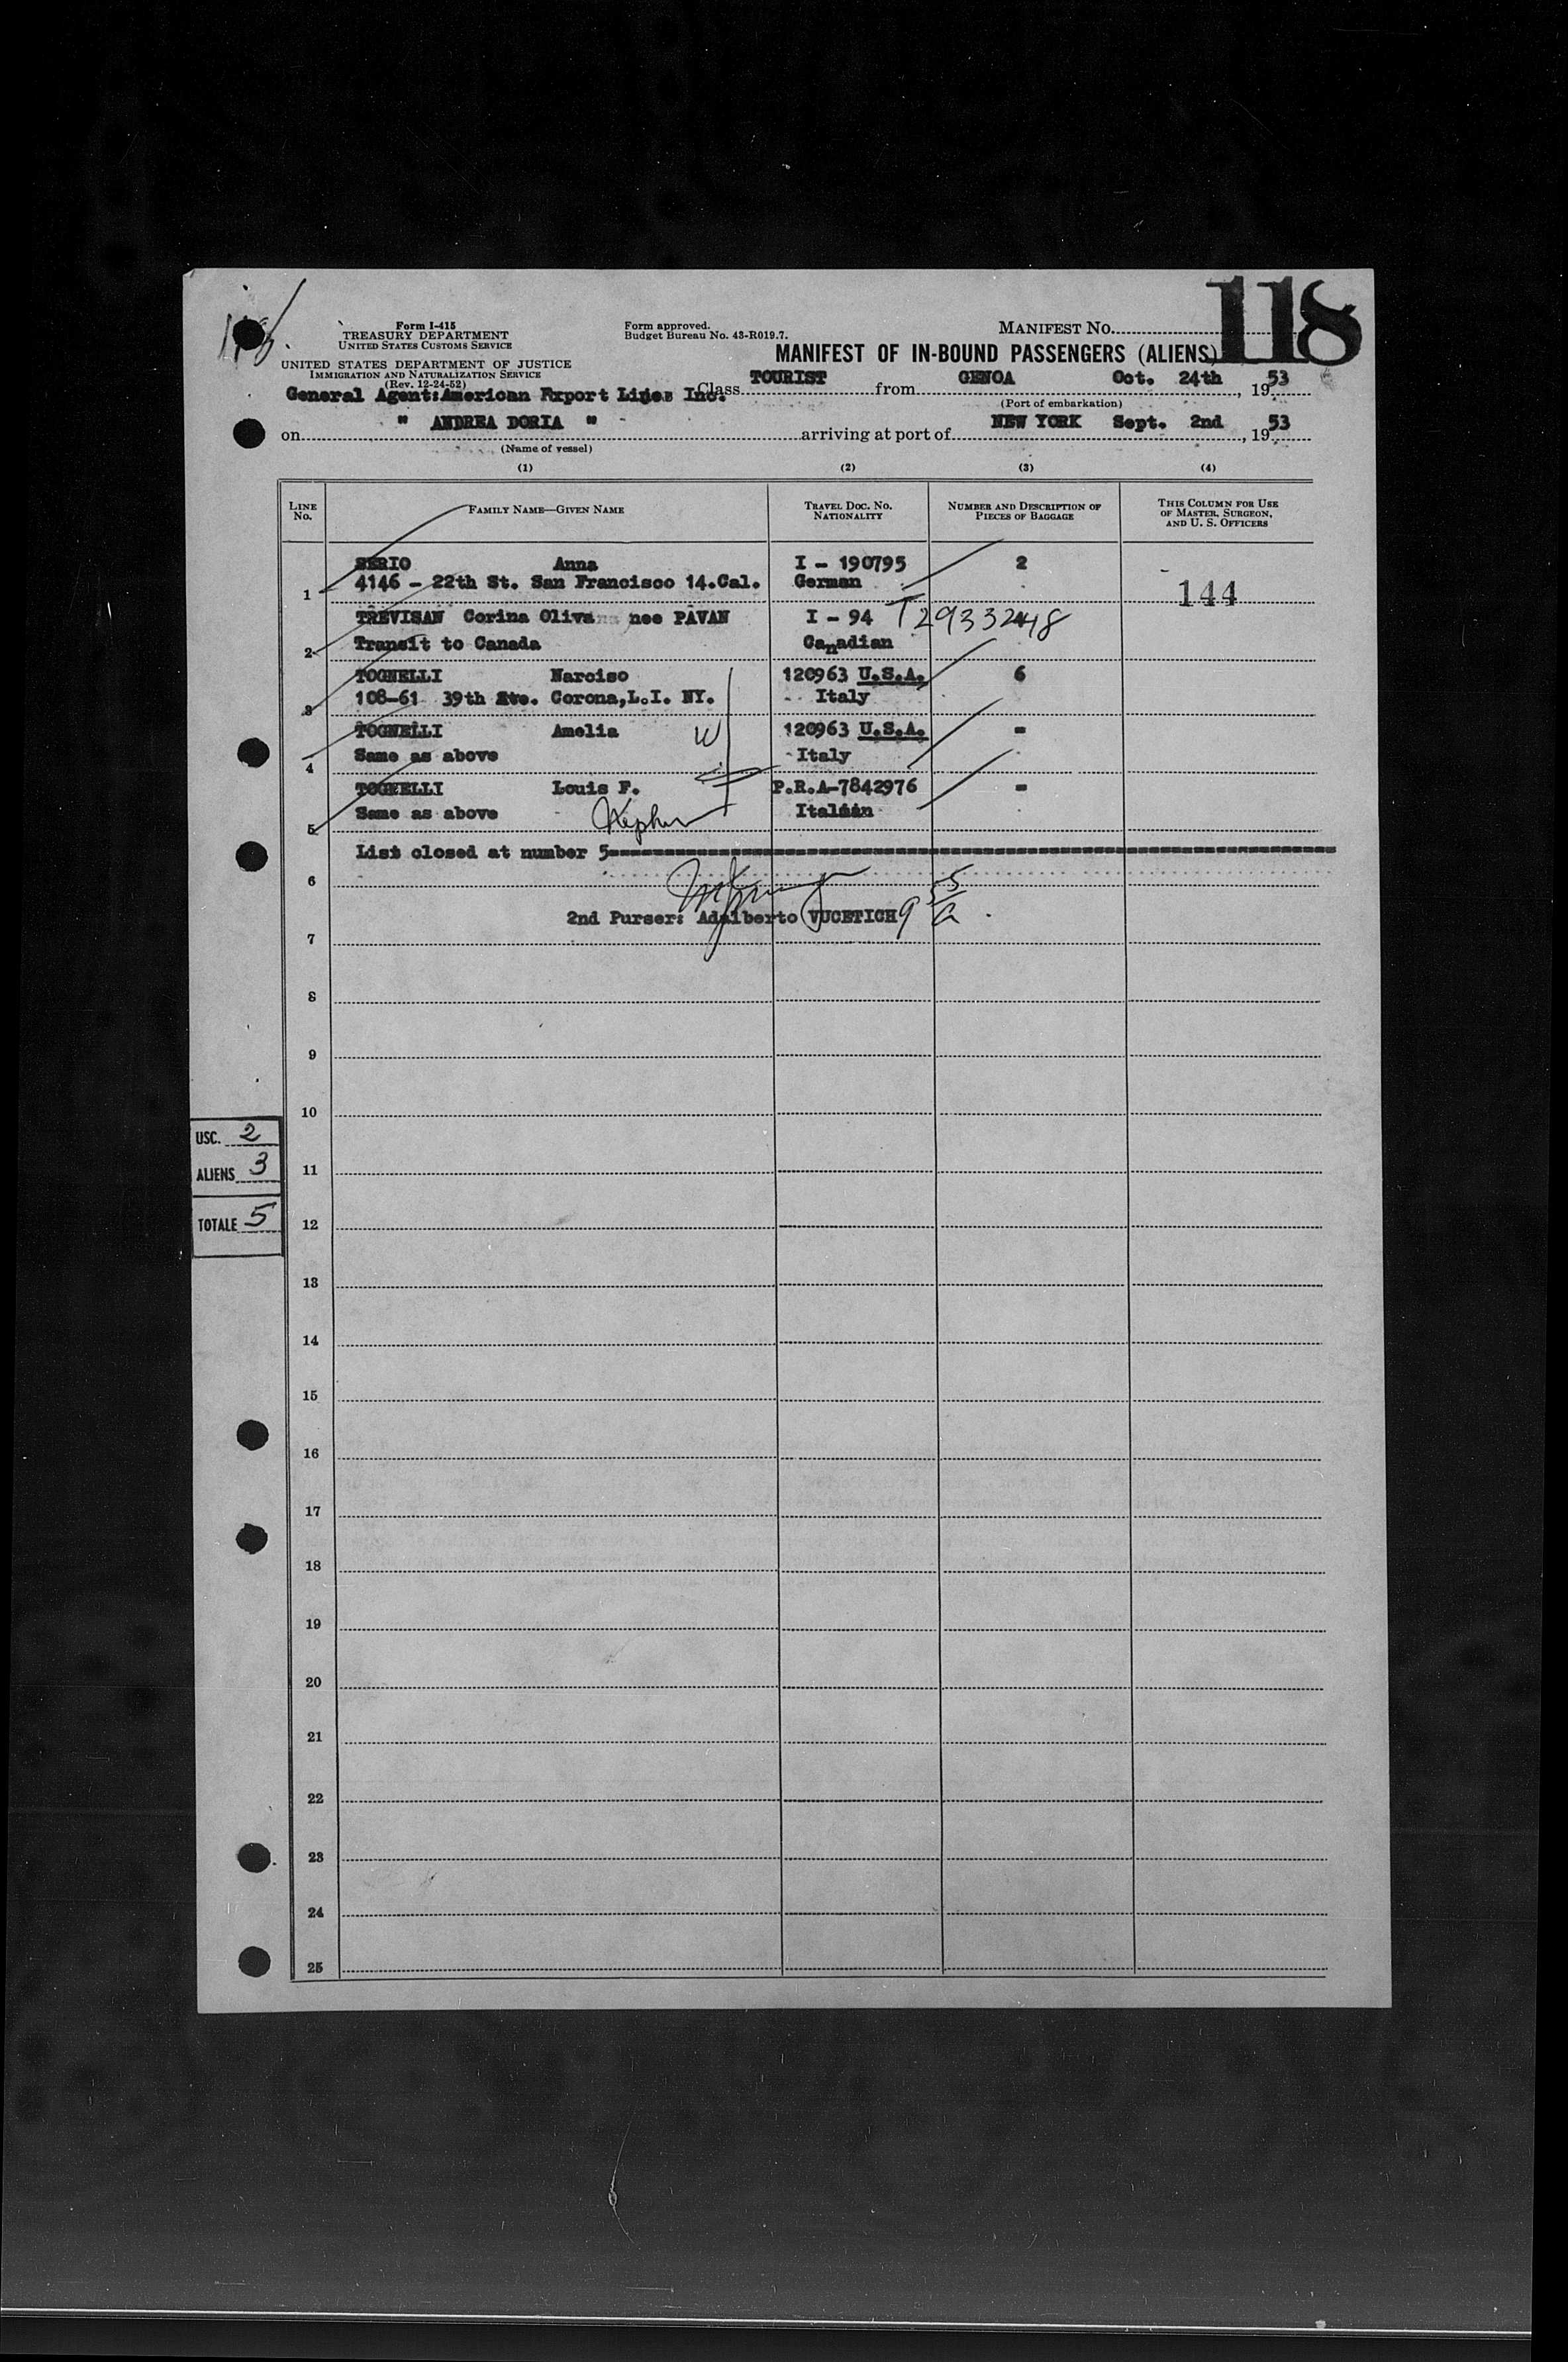 118
Form I-415
TREASURY DEPARTMENT
UNITED STATES CUSTOMS SERVICE
UNITED STATES DEPARTMENT OF JUSTICE
IMMIGRATION AND NATURALIZATION SERVICE
(Rev. 12-24-52)
Form approved.
Budget Bureau No. 43-R019.7.
MANIFEST NO.
MANIFEST OF IN-BOUND PASSENGERS (ALIENS)
General Agent:American Export Lines Inc. Class TOURIST from GENOA Oct. 24th, 1953
(Port of embarkation)
on " ANDREA DORIA " arriving at port of NEW YORK Sept. 2nd, 1953
(Name of vessel)
(1) (2) (3) (4)
LINE NO. FAMILY NAME—GIVEN NAME TRAVEL DOC. NO. NATIONALITY NUMBER AND DESCRIPTION OF PIECES OF BAGGAGE THIS COLUMN FOR USE OF MASTER, SURGEON, AND U. S. OFFICERS
SERIO Anna I - 190795 2
1 4146 - 22th St. San Francisco 14.Cal. German 144
TREVISAN Corina Oliva nee PAVAN I - 94 T2933248
2 Transit to Canada Canadian
TOGNELLI Narciso 120963 U.S.A. 6
3 108-61 39th Ave. Corona,L.I. NY. Italy
TOGNELLI Amelia W 120963 U.S.A. -
4 Same as above Italy
TOGNELLI Louis F. P.R.A-7842976 -
5 Same as above Italian
List closed at number 5
6
2nd Purser: Adalberto VUCETICH
7
8
9
10
USC. 2
ALIENS 3
11
TOTALE 5
12
13
14
15
16
17
18
19
20
21
22
23
24
25